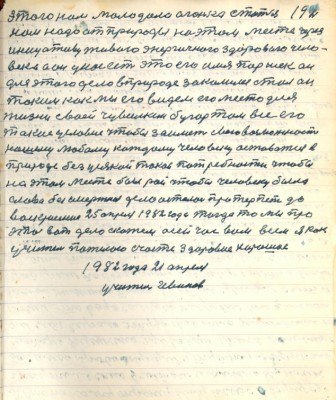 этого нам молодого огонька статья 192
нам надо от природы на этом месте через
инициативу живого энергичного здорового чело-
века а он у нас есть это его имя парнек он
для этого дело в природе закалился стал он
таким как мы его видем его место для
жизни своей чувилкин бугор там все его
такие условия чтобы заиметь свою возможность
нашему любому каждому человеку остатся в
природе без всякой такой потребности чтобы
на этом месте был рай чтобы человеку была
слава бессмертная дело осталось протерпеть до
воскресения 25 апреля 1982 года тогда то мы про
это вот дело скажем а сейчас вам всем я как
учитель пожелаю счастье здоровие хорошее
1982 года 21 апреля
учитель Иванов